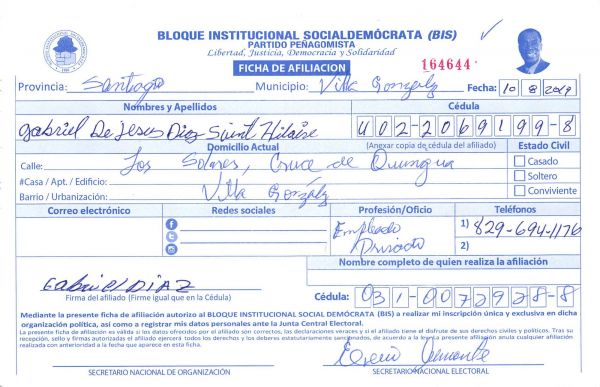 BLOQUE INSTITUCIONAL SOCIALDEMÓCRATA (BIS)
PARTIDO PEÑAGOMISTA
Libertad, Justicia, Democracia y Solidaridad
FICHA DE AFILIACION
164644
Provincia: Santiago Municipio: Villa González Fecha: 10 8 2019
Nombres y Apellidos Cédula
Gabriel De Jesus Diaz Saint Hilaire 402-2069199-8
Domicilio Actual (Anexar copia de cédula del afiliado) Estado Civil
Calle: Los Solares, Cruce de Quinigua Casado
#Casa / Apt. / Edificio: Soltero
Barrio / Urbanización: Villa González Conviviente
Correo electrónico Redes sociales Profesión/Oficio Teléfonos
Empleado 1) 829-694-1176
Privado 2)
Nombre completo de quien realiza la afiliación
Gabriel DIAZ
Firma del afiliado (Firme igual que en la Cédula) Cédula: 031-0072928-8
Mediante la presente ficha de afiliación autorizo al BLOQUE INSTITUCIONAL SOCIAL DEMÓCRATA (BIS) a realizar mi inscripción única y exclusiva en dicha
organización política, así como a registrar mis datos personales ante la Junta Central Electoral.
La presente ficha de afiliación es válida si los datos ofrecidos por el afiliado son correctos, las declaraciones veraces y si el afiliado tiene el disfrute de sus derechos civiles y políticos. Tras su
recepción, sello y firmas autorizadas el afiliado ejercerá todos los derechos y los deberes estatutariamente sancionados, de acuerdo a la ley. La presente afiliación anula cualquiera realizada
con anterioridad a la fecha que aparece en esta ficha.
SECRETARIO NACIONAL DE ORGANIZACIÓN SECRETARIO NACIONAL ELECTORAL